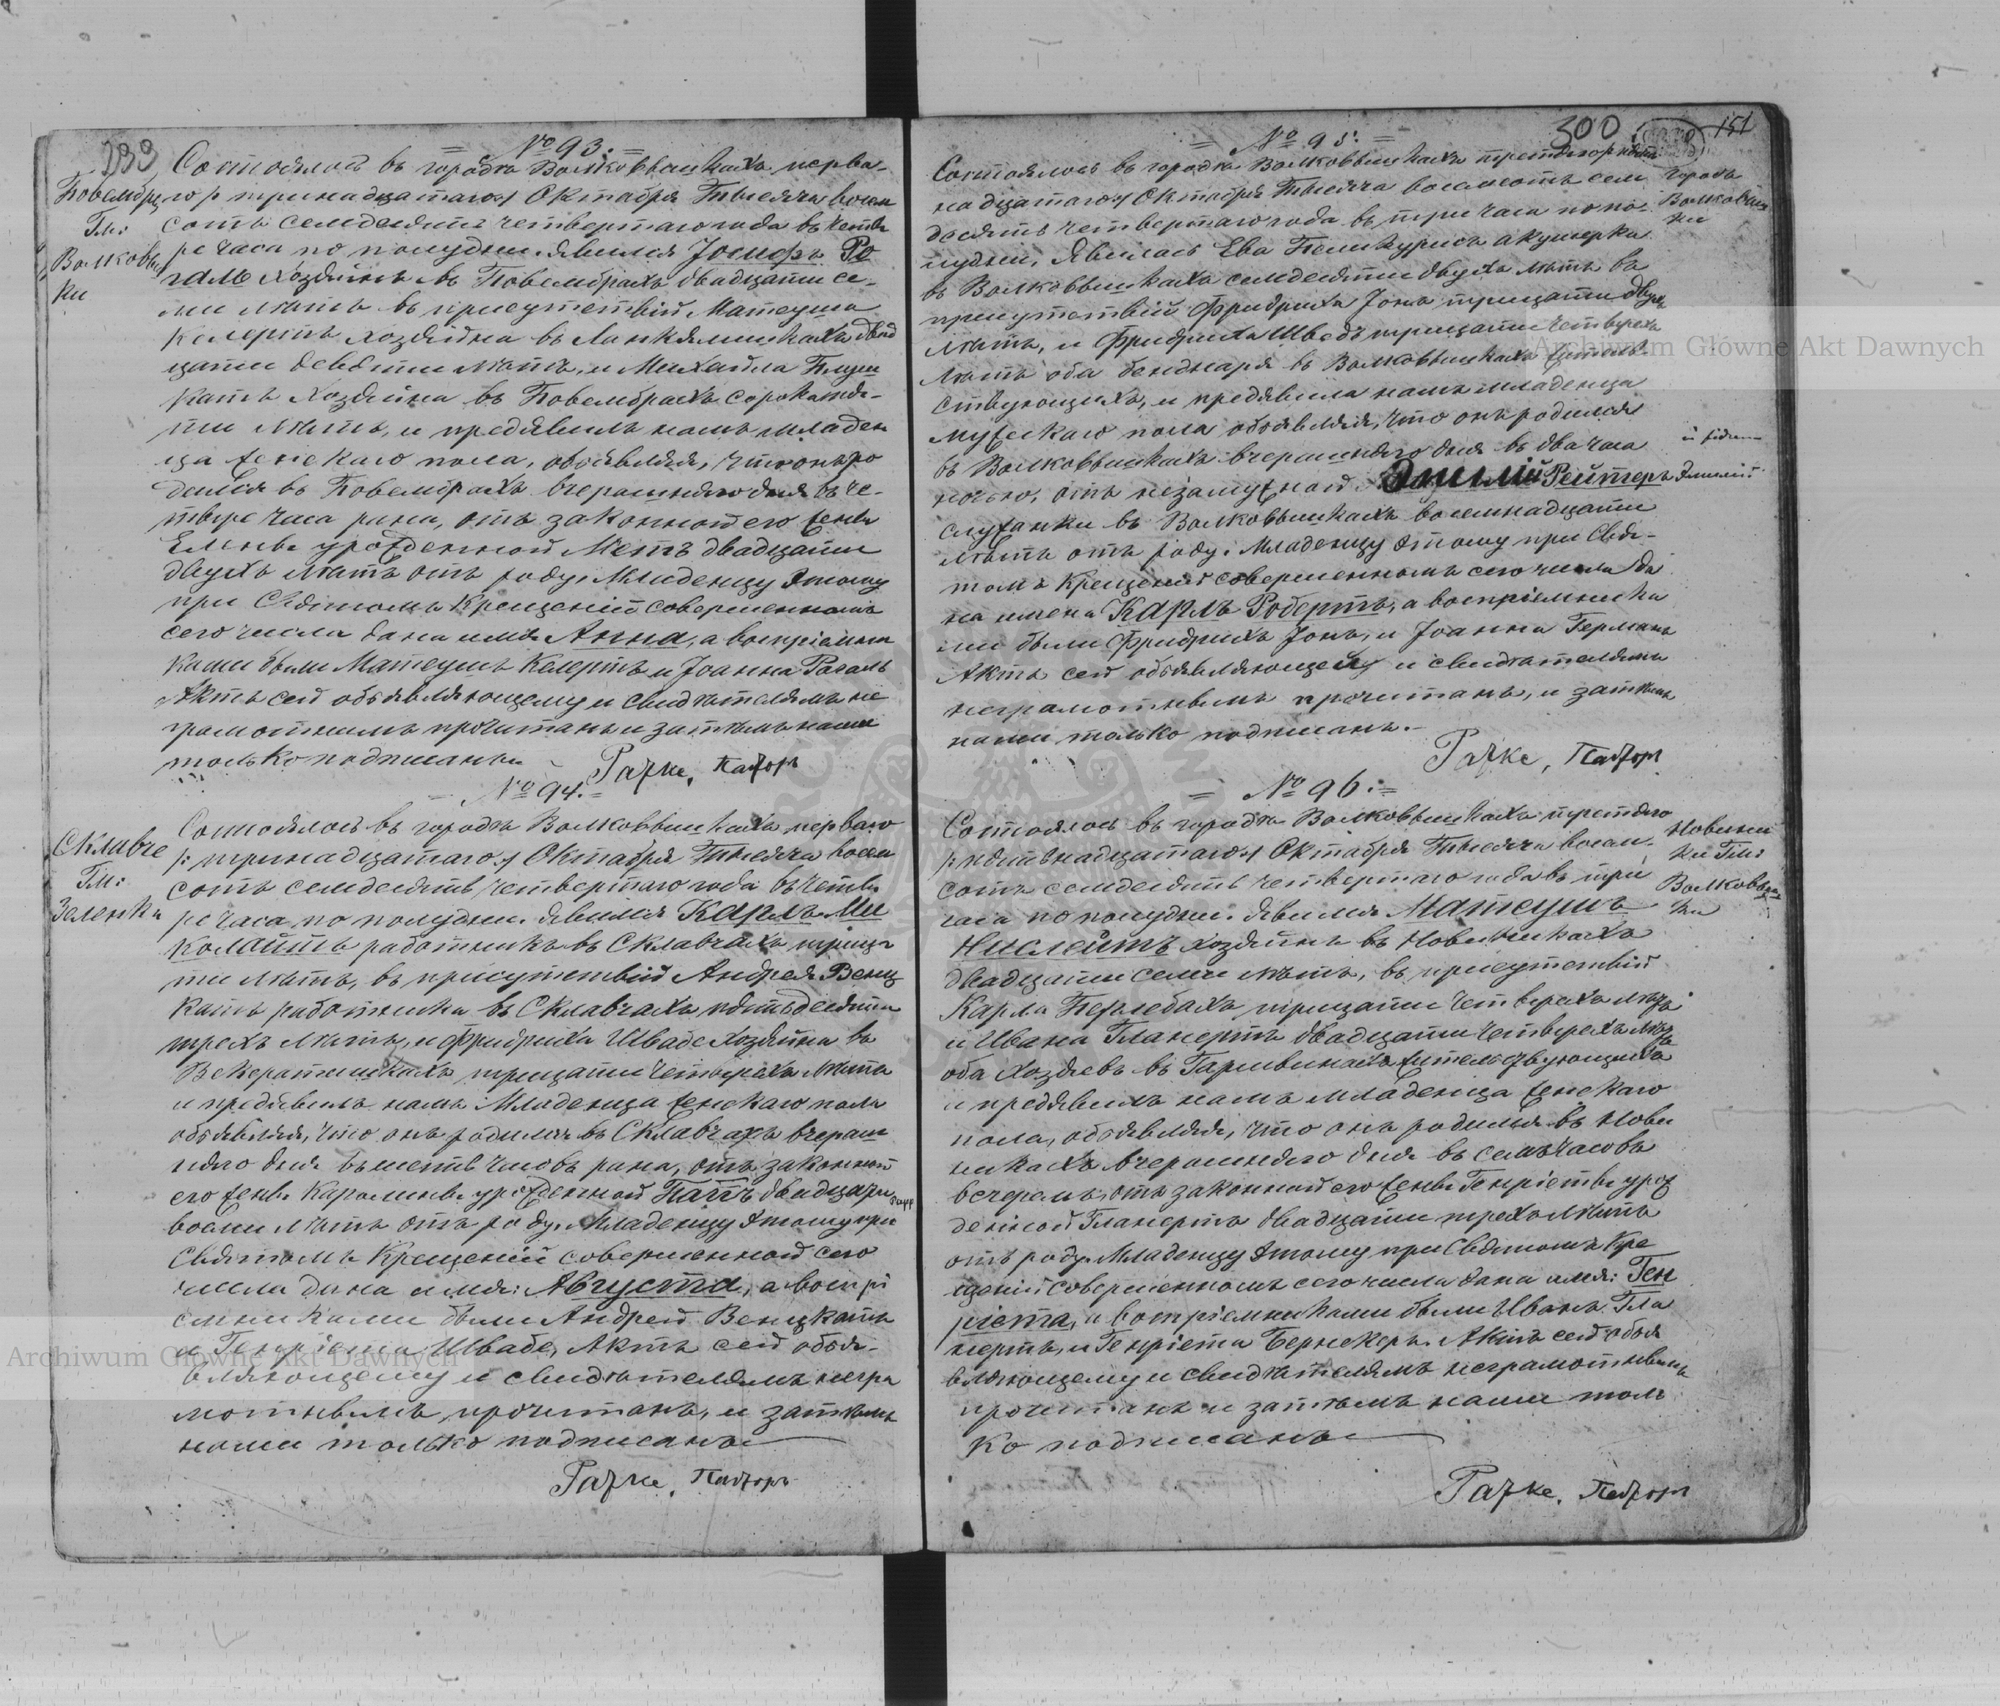 299
№ 93.
Бовембри
Гм:
Волковыш
ки
Состоялось въ городкѣ Волковышкахъ перва-
го /: тринадцатаго :/ Октября Тысяча восем
сотъ семдесятъ четвертаго года въ четы
ре часа по полудни. Явился Іосифъ Ро
галь хозяинъ въ Бовембрахъ двадцати се-
ми лѣтъ въ присутствіи Матеуша
Келертъ хозяина въ двад
цати девяти лѣтъ, и Михаила
хозяина въ Бовембрахъ сорока пя-
ти лѣтъ, и предявилъ намъ младен
ца женскаго пола, объявляя, что онъ ро
дился въ Бовембрахъ вчерашняго дня въ че-
тыре часа рана, отъ законной его жены
Елены урожденной Метъ двадцати
двухъ лѣтъ отъ роду. Младенцу этому
при Святомъ Крещеніи совершенномъ
сего числа дана имя Анна, а воспріемни
ками были Матеушъ Келертъ и Іоанна Рогаль
Актъ сей объявляющему и свидѣтелямъ не
грамотнымъ прочитанъ и затѣмъ нами
только подписанъ.
Пасторъ
№ 94.
Склавче
Гм:
Зеленка
Состоялось въ городкѣ Волковышкахъ перваго
/: тринадцатаго :/ Октября Тысяча восем
сотъ семдесятъ четвертаго года въ четы
ре часа по полудни. Явился Карлъ Ми
колайтъ работникъ въ Склавчахъ трица
ти лѣтъ, въ присутствіи Андрея Венц
катъ работника въ Склавчахъ пятьдесяти
трехъ лѣтъ, и Фридриха Швабе хозяина въ
трицати четырехъ лѣтъ
и предявилъ намъ Младенца женскаго пола
объявляя, что онъ родился въ Склавчахъ вчераш
няго дня въ шесть часовъ рана, отъ законной
его жены Каролины урожденной двадцати
восми лѣтъ отъ роду. Младенцу этому при
Святомъ Крещеніи совершенной сего
числа дана имя: Августа, а воспрі
емниками были Андрей Венцкатъ
и Генріета Швабе, Актъ сей объя-
вляющему и свидѣтелямъ негра
мотнымъ прочитанъ, и затѣмъ
нами только подписанъ
Пасторъ
300
151
№ 95.
городъ
Волковыш
ки
Состоялось въ городкѣ Волковышкахъ третяго /: пят
надцатаго :/ Октября Тысяча восемсотъ сем
десятъ четвертаго года въ три часа по по-
лудни, Явилась Ева акушерка
въ Волковышкахъ семдесяти двухъ лѣтъ въ
присутствіи Фридриха Іонъ трицати двухъ
лѣтъ, и Фридриха Шведъ трицати четырехъ
лѣтъ оба въ Волковышкахъ житель-
ствующихъ, и предявила намъ младенца
мужескаго пола объявляя, что онъ родился
въ Волковышкахъ вчерашняго дня въ два часа
ночью, отъ незамужной Эмиліи Рейтеръ
служанки въ Волковышкахъ восемнадцати
лѣтъ отъ роду. Младенцу этому при Свя-
томъ Крещеніи совершенномъ сего числа да
на имена Карлъ Робертъ, а воспріемника
ми были Фридрихъ Іонъ, и Іоанна Германъ
Актъ сей объявляющему и свидѣтелямъ
неграмотнымъ прочитанъ, и затѣмъ
нами только подписанъ.
Пасторъ
№ 96.
Новинни
ки Гм:
Волковыш
ки
Состоялось въ городкѣ Волковышкахъ третяго
/: пятьнадцатаго :/ Октября Тысяча восем
сотъ семдесятъ четвертаго года въ три
часа по полудни. Явился Матеушъ
Нислейтъ хозяинъ въ Новинникахъ
двадцати семи лѣтъ, въ присутствіи
Карла Перлебахъ трицати четырехъ лѣтъ
и Ивана Гланертъ двадцати четырехъ лѣтъ
оба хозяевъ въ жительствующихъ
и предявилъ намъ младенца женскаго
пола, объявляя, что онъ родился въ Новин
никахъ вчерашняго дня въ семь часовъ
вечеромъ, отъ законной его жены Генріеты урож
денной Гланертъ двадцати трехъ лѣтъ
отъ роду. Младенцу этому при Святомъ Кре
щеніи совершенномъ сего числа дана имя: Ген
ріета, а воспріемниками были Иванъ Гла
нертъ, и Генріета Бернекеръ. Актъ сей объя
вляющему и свидѣтелямъ неграмотнымъ
прочитанъ и затѣмъ нами толь
ко подписанъ
Пасторъ
Archiwum Główne Akt Dawnych
Archiwum Główne Akt Dawnych